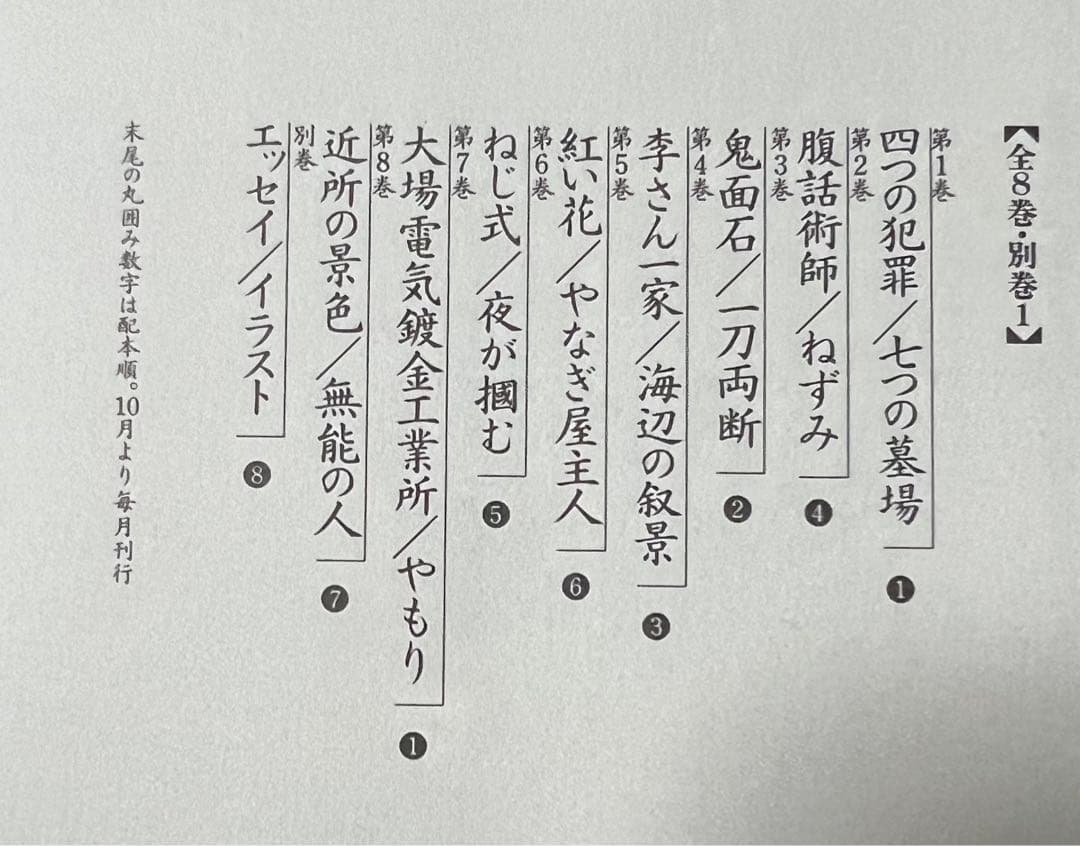 【全8巻・別巻1】
第1巻
四つの犯罪/七つの墓場 ❶
第2巻
腹話術師/ねずみ ❹
第3巻
鬼面石/一刀両断 ❷
第4巻
李さん一家/海辺の叙景 ❸
第5巻
紅い花/やなぎ屋主人 ❻
第6巻
ねじ式/夜が摑む ❺
第7巻
大場電気鍍金工業所/やもり ❶
第8巻
近所の景色/無能の人 ❼
別巻
エッセイ/イラスト ❽
末尾の丸囲み数字は配本順。10月より毎月刊行